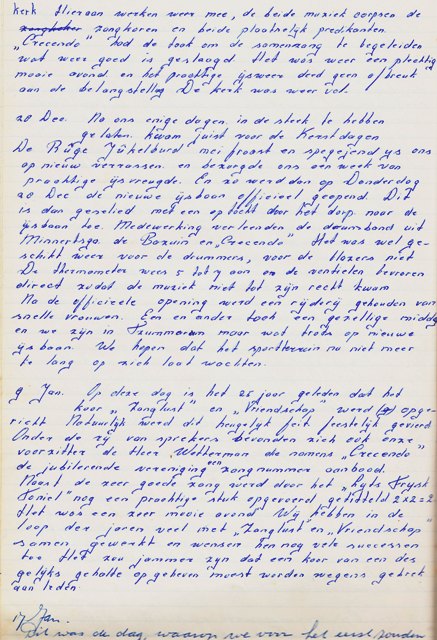 kerk Hieraan werken weer mee, de beide muziek corpsen de
zangkoren en beide plaatselijk predikanten.
"Crecendo" had de taak om de samenzang te begeleiden
wat weer goed is geslaagd. Het was weer een prachtig
mooie avond en het prachtige ijsweer deed geen afbreuk
aan de belangstelling De kerk was weer vol.
28 Dec. Na ons enige dagen in de steek te hebben
gelaten. kwam juist voor de Kerstdagen
De Rûge Jûkelburd mei froast en spegeljend iis ons
op nieuw verrassen. en bezorgde ons een week van
prachtige ijsvreugde. En zo werd dan op Donderdag
28 Dec de nieuwe ijsbaan officieel geopend. Dit
is dan geschied met een optocht door het dorp naar de
ijsbaan toe. Medewerking verleenden de drumband uit
Minnertsga de Bazuin en "Crecendo" Het was wel ge-
schikt weer voor de drummers, voor de blazers niet
De thermometer wees 5 tot 7 aan en de ventielen bevroren
direct zodat de muziek niet tot zijn recht kwam
Na de officieele opening werd een rijderij gehouden van
snelle vrouwen. Een en ander toch een gezellige middag
en we zijn in Tzummarum maar wat trots op nieuwe
ijsbaan. We hopen dat het sportterrein nu niet meer
te lang op zich laat wachten.
9 Jan. Op deze dag is het 25 jaar geleden dat het
koor "Zanglust" en "Vriendschap" werd opge-
richt Natuurlijk werd dit heugelijk feit feestelijk gevierd
Onder de rij van sprekers bevonden zich ook onze
voorzitter de Heer Wolterman die namens "Crecendo"
de jubilerende vereniging een zangnummer aanbood.
Naast de zeer goede zang werd door het "Lyts Frysk
Toniel" nog een prachtige stuk opgevoerd getiteld 2x2=2
Het was een zeer mooie avond Wij hebben in de
loop der jaren veel met "Zanglust" en "Vriendschap"
samen gewerkt en wensen hen nog vele successen
toe Het zou jammer zijn dat een koor van een des
gelijks gehalte opgeheven moest worden wegens gebrek
aan leden
17 Jan.
Dit was de dag, waarop we voor het eerst zouden